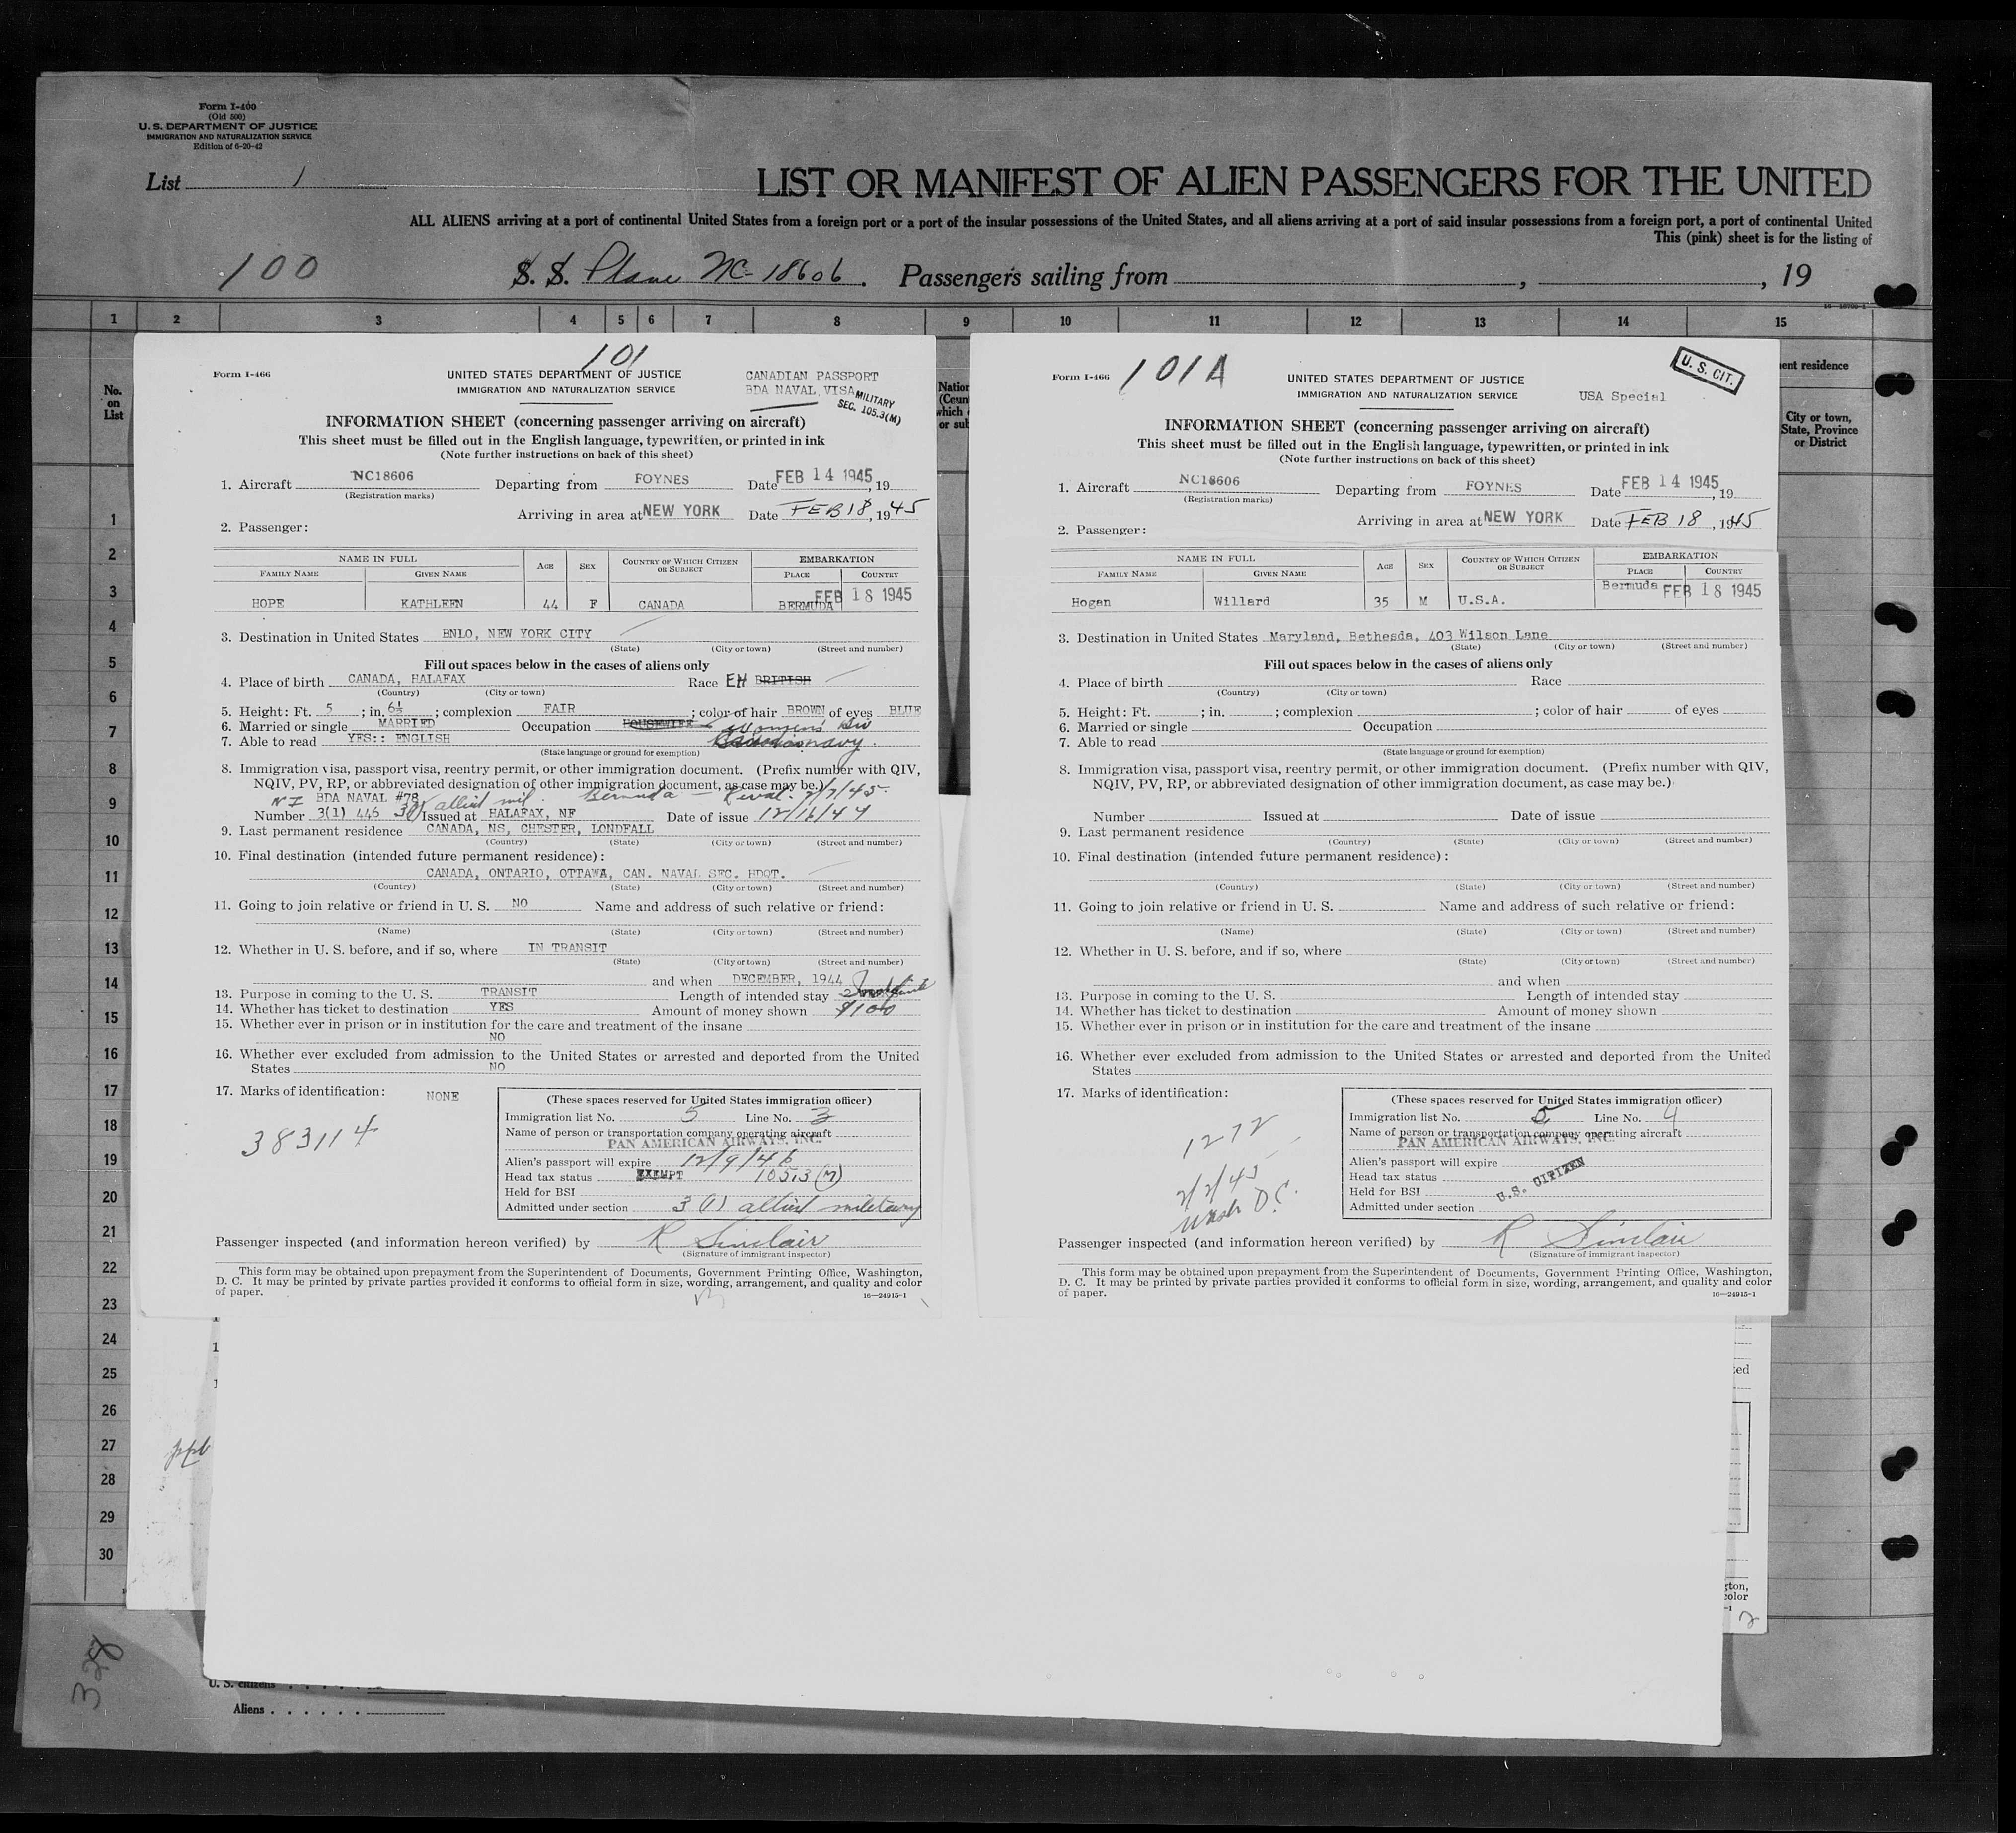 Form I-400
(Old 500)
U. S. DEPARTMENT OF JUSTICE
IMMIGRATION AND NATURALIZATION SERVICE
Edition of 6-20-42
List 1
LIST OR MANIFEST OF ALIEN PASSENGERS FOR THE UNITED
ALL ALIENS arriving at a port of continental United States from a foreign port or a port of the insular possessions of the United States, and all aliens arriving at a port of said insular possessions from a foreign port, a port of continental United
This (pink) sheet is for the listing of
100 S. S. Plane NC-18606. Passengers sailing from , , 19
1 2 3 4 5 6 7 8 9 10 11 12 13 14 15
No.
on
List
ent residence
City or town,
State, Province
or District
1
2
3
4
5
6
7
8
9
10
11
12
13
14
15
16
17
18
19
20
21
22
23
24
25
26
27
28
29
30
101
Form I-466
UNITED STATES DEPARTMENT OF JUSTICE
IMMIGRATION AND NATURALIZATION SERVICE
CANADIAN PASSPORT
BDA NAVAL VISA
MILITARY
SEC. 105.3(M)
INFORMATION SHEET (concerning passenger arriving on aircraft)
This sheet must be filled out in the English language, typewritten, or printed in ink
(Note further instructions on back of this sheet)
1. Aircraft NC18606 Departing from FOYNES Date FEB 14 1945, 19
(Registration marks)
Arriving in area at NEW YORK Date FEB 18, 1945
2. Passenger:
NAME IN FULL AGE SEX COUNTRY OF WHICH CITIZEN OR SUBJECT EMBARKATION
FAMILY NAME GIVEN NAME PLACE COUNTRY
HOPE KATHLEEN 44 F CANADA BERMUDA FEB 18 1945
3. Destination in United States BNLO, NEW YORK CITY
(State) (City or town) (Street and number)
Fill out spaces below in the cases of aliens only
4. Place of birth CANADA, HALAFAX Race EH BRITISH
(Country) (City or town)
5. Height: Ft. 5 ; in. 6½ ; complexion FAIR ; color of hair BROWN of eyes BLUE
6. Married or single MARRIED Occupation HOUSEWIFE Womens
7. Able to read YES:: ENGLISH navy.
(State language or ground for exemption)
8. Immigration visa, passport visa, reentry permit, or other immigration document. (Prefix number with QIV,
NQIV, PV, RP, or abbreviated designation of other immigration document, as case may be.)
BDA NAVAL #78 allied mil. Bermuda
Number 3(1) 446 Issued at HALAFAX, NF Date of issue 12/16/44
9. Last permanent residence CANADA, NS, CHESTER, LONDFALL
(Country) (State) (City or town) (Street and number)
10. Final destination (intended future permanent residence):
CANADA, ONTARIO, OTTAWA, CAN. NAVAL SEC. HDQT.
(Country) (State) (City or town) (Street and number)
11. Going to join relative or friend in U. S. NO Name and address of such relative or friend:
(Name) (State) (City or town) (Street and number)
12. Whether in U. S. before, and if so, where IN TRANSIT
(State) (City or town) (Street and number)
and when DECEMBER, 1944
13. Purpose in coming to the U. S. TRANSIT Length of intended stay
14. Whether has ticket to destination YES Amount of money shown $100
15. Whether ever in prison or in institution for the care and treatment of the insane
NO
16. Whether ever excluded from admission to the United States or arrested and deported from the United
States NO
17. Marks of identification: NONE
383114
(These spaces reserved for United States immigration officer)
Immigration list No. 5 Line No. 3
Name of person or transportation company operating aircraft
PAN AMERICAN AIRWAYS, INC.
Alien's passport will expire 12/9/46
Head tax status EXEMPT 105.3(M)
Held for BSI
Admitted under section 3(1) allied military
Passenger inspected (and information hereon verified) by R Sinclair
(Signature of immigrant inspector)
This form may be obtained upon prepayment from the Superintendent of Documents, Government Printing Office, Washington,
D. C. It may be printed by private parties provided it conforms to official form in size, wording, arrangement, and quality and color
of paper.
16—24915-1
101A
Form I-466
UNITED STATES DEPARTMENT OF JUSTICE
IMMIGRATION AND NATURALIZATION SERVICE
USA Special
U. S. CIT.
INFORMATION SHEET (concerning passenger arriving on aircraft)
This sheet must be filled out in the English language, typewritten, or printed in ink
(Note further instructions on back of this sheet)
1. Aircraft NC18606 Departing from FOYNES Date FEB 14 1945, 19
(Registration marks)
Arriving in area at NEW YORK Date FEB 18, 1945
2. Passenger:
NAME IN FULL AGE SEX COUNTRY OF WHICH CITIZEN OR SUBJECT EMBARKATION
FAMILY NAME GIVEN NAME PLACE COUNTRY
Hogan Willard 35 M U.S.A. Bermuda FEB 18 1945
3. Destination in United States Maryland, Bethesda, 403 Wilson Lane
(State) (City or town) (Street and number)
Fill out spaces below in the cases of aliens only
4. Place of birth Race
(Country) (City or town)
5. Height: Ft. ; in. ; complexion ; color of hair of eyes
6. Married or single Occupation
7. Able to read
(State language or ground for exemption)
8. Immigration visa, passport visa, reentry permit, or other immigration document. (Prefix number with QIV,
NQIV, PV, RP, or abbreviated designation of other immigration document, as case may be.)
Number Issued at Date of issue
9. Last permanent residence
(Country) (State) (City or town) (Street and number)
10. Final destination (intended future permanent residence):
(Country) (State) (City or town) (Street and number)
11. Going to join relative or friend in U. S. Name and address of such relative or friend:
(Name) (State) (City or town) (Street and number)
12. Whether in U. S. before, and if so, where
(State) (City or town) (Street and number)
and when
13. Purpose in coming to the U. S. Length of intended stay
14. Whether has ticket to destination Amount of money shown
15. Whether ever in prison or in institution for the care and treatment of the insane
16. Whether ever excluded from admission to the United States or arrested and deported from the United
States
17. Marks of identification:
1272
2/2/45
Wash D.C.
(These spaces reserved for United States immigration officer)
Immigration list No. 5 Line No. 4
Name of person or transportation company operating aircraft
PAN AMERICAN AIRWAYS, INC.
Alien's passport will expire
Head tax status
U.S. CITIZEN
Held for BSI
Admitted under section
Passenger inspected (and information hereon verified) by R Sinclair
(Signature of immigrant inspector)
This form may be obtained upon prepayment from the Superintendent of Documents, Government Printing Office, Washington,
D. C. It may be printed by private parties provided it conforms to official form in size, wording, arrangement, and quality and color
of paper.
16—24915-1
ppt
328
U. S. citizens
Aliens